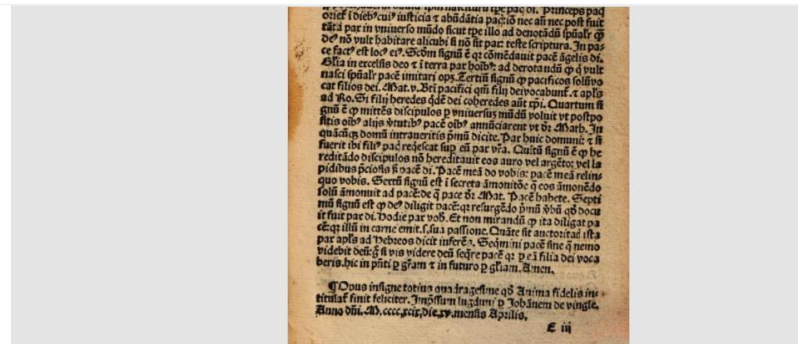 orieť i diebᵒ cuiᵒ iusticia ⁊ abũdãtia pacꝭ iõ nec añ nec post fuit
tãta pax in vniuerso mũdo sicut tꝑe illo ad denotãdũ spũalr ꝙ
deᵒ nõ vult habitare alicubi si nõ sit pax: teste scriptura. In pa-
ce factᵒ est locᵒ eiᵒ. Scõm signũ ẽ qꝛ cõmẽdauit pacẽ ãgelis di.
Glĩa in excelsis deo ⁊ ĩ terra pax hoĩbᵒ: ad denotandũ ꝙ ꝗ vult
nasci spũalr pacẽ imitari opꝫ. Tertiũ signũ ꝙ pacificos solũ vo
cat filios dei. Mat. v. Bti pacifici qm̃ filij dei vocabunť. ⁊ apl̃s
ad Ro. Si filij heredes ꝗdẽ dei coheredes aũt xp̃i. Quartum si
gnũ ẽ ꝙ mittẽs discipulos ꝑ vniuersuꝫ mũdũ voluit vt postpo
sitis oĩbᵒ alijs ꝟtutibᵒ pacẽ annũciarent vt dꝛ Math. In
quãcũqꝫ domũ intraueritis pꝛimũ dicite. Pax huic domui: ⁊ si
fuerit ibi filiᵒ pacꝭ reꝗescat sup eũ pax vr̃a. Quĩtũ signũ ẽ ꝙ he
reditãdo discipulos nõ hereditauit eos auro vel argẽto: vel la
pidibus p̃ciosis sꝫ pacẽ di. Pacẽ meã do vobis: pacẽ meã relin-
quo vobis. Sextũ signũ est ĩ secreta ãmonitõe ꝗ eos ãmonẽdo
solũ ãmonuit ad pacẽ: de ꝗ pace dꝛ Mat. Pacẽ habete. Septi
mũ signũ est ꝙ deᵒ diligit pacẽ: qꝛ resurgẽdo p̃mũ ꝟbũ qð docu
it fuit pax di. Hodie pax vob̃. Et non mirandũ ꝙ ita diligat pa
cẽ: qꝛ illũ in carne emit. s. sua passione. Quãte sit auctoritas ista
pax apl̃s ad Hebreos dicit inferẽs. Seqmini pacẽ sine ꝗ nemo
videbit deũ: ꝗ si vis videre deũ seqr̃e pacẽ qꝛ ꝑ eã filia dei voca
beris. hic in p̃nti ꝑ gr̃am ⁊ in futuro ꝑ gl̃iam. Amen.
¶ Opus insigne totius quadragesime qð Anima fidelis in-
titulať finit feliciter. Impꝛessum lugduni ꝑ Iohãnem de vingle.
Anno dñi. M. cccc. xcix. die. xv. mensis Aprilis.
E iij